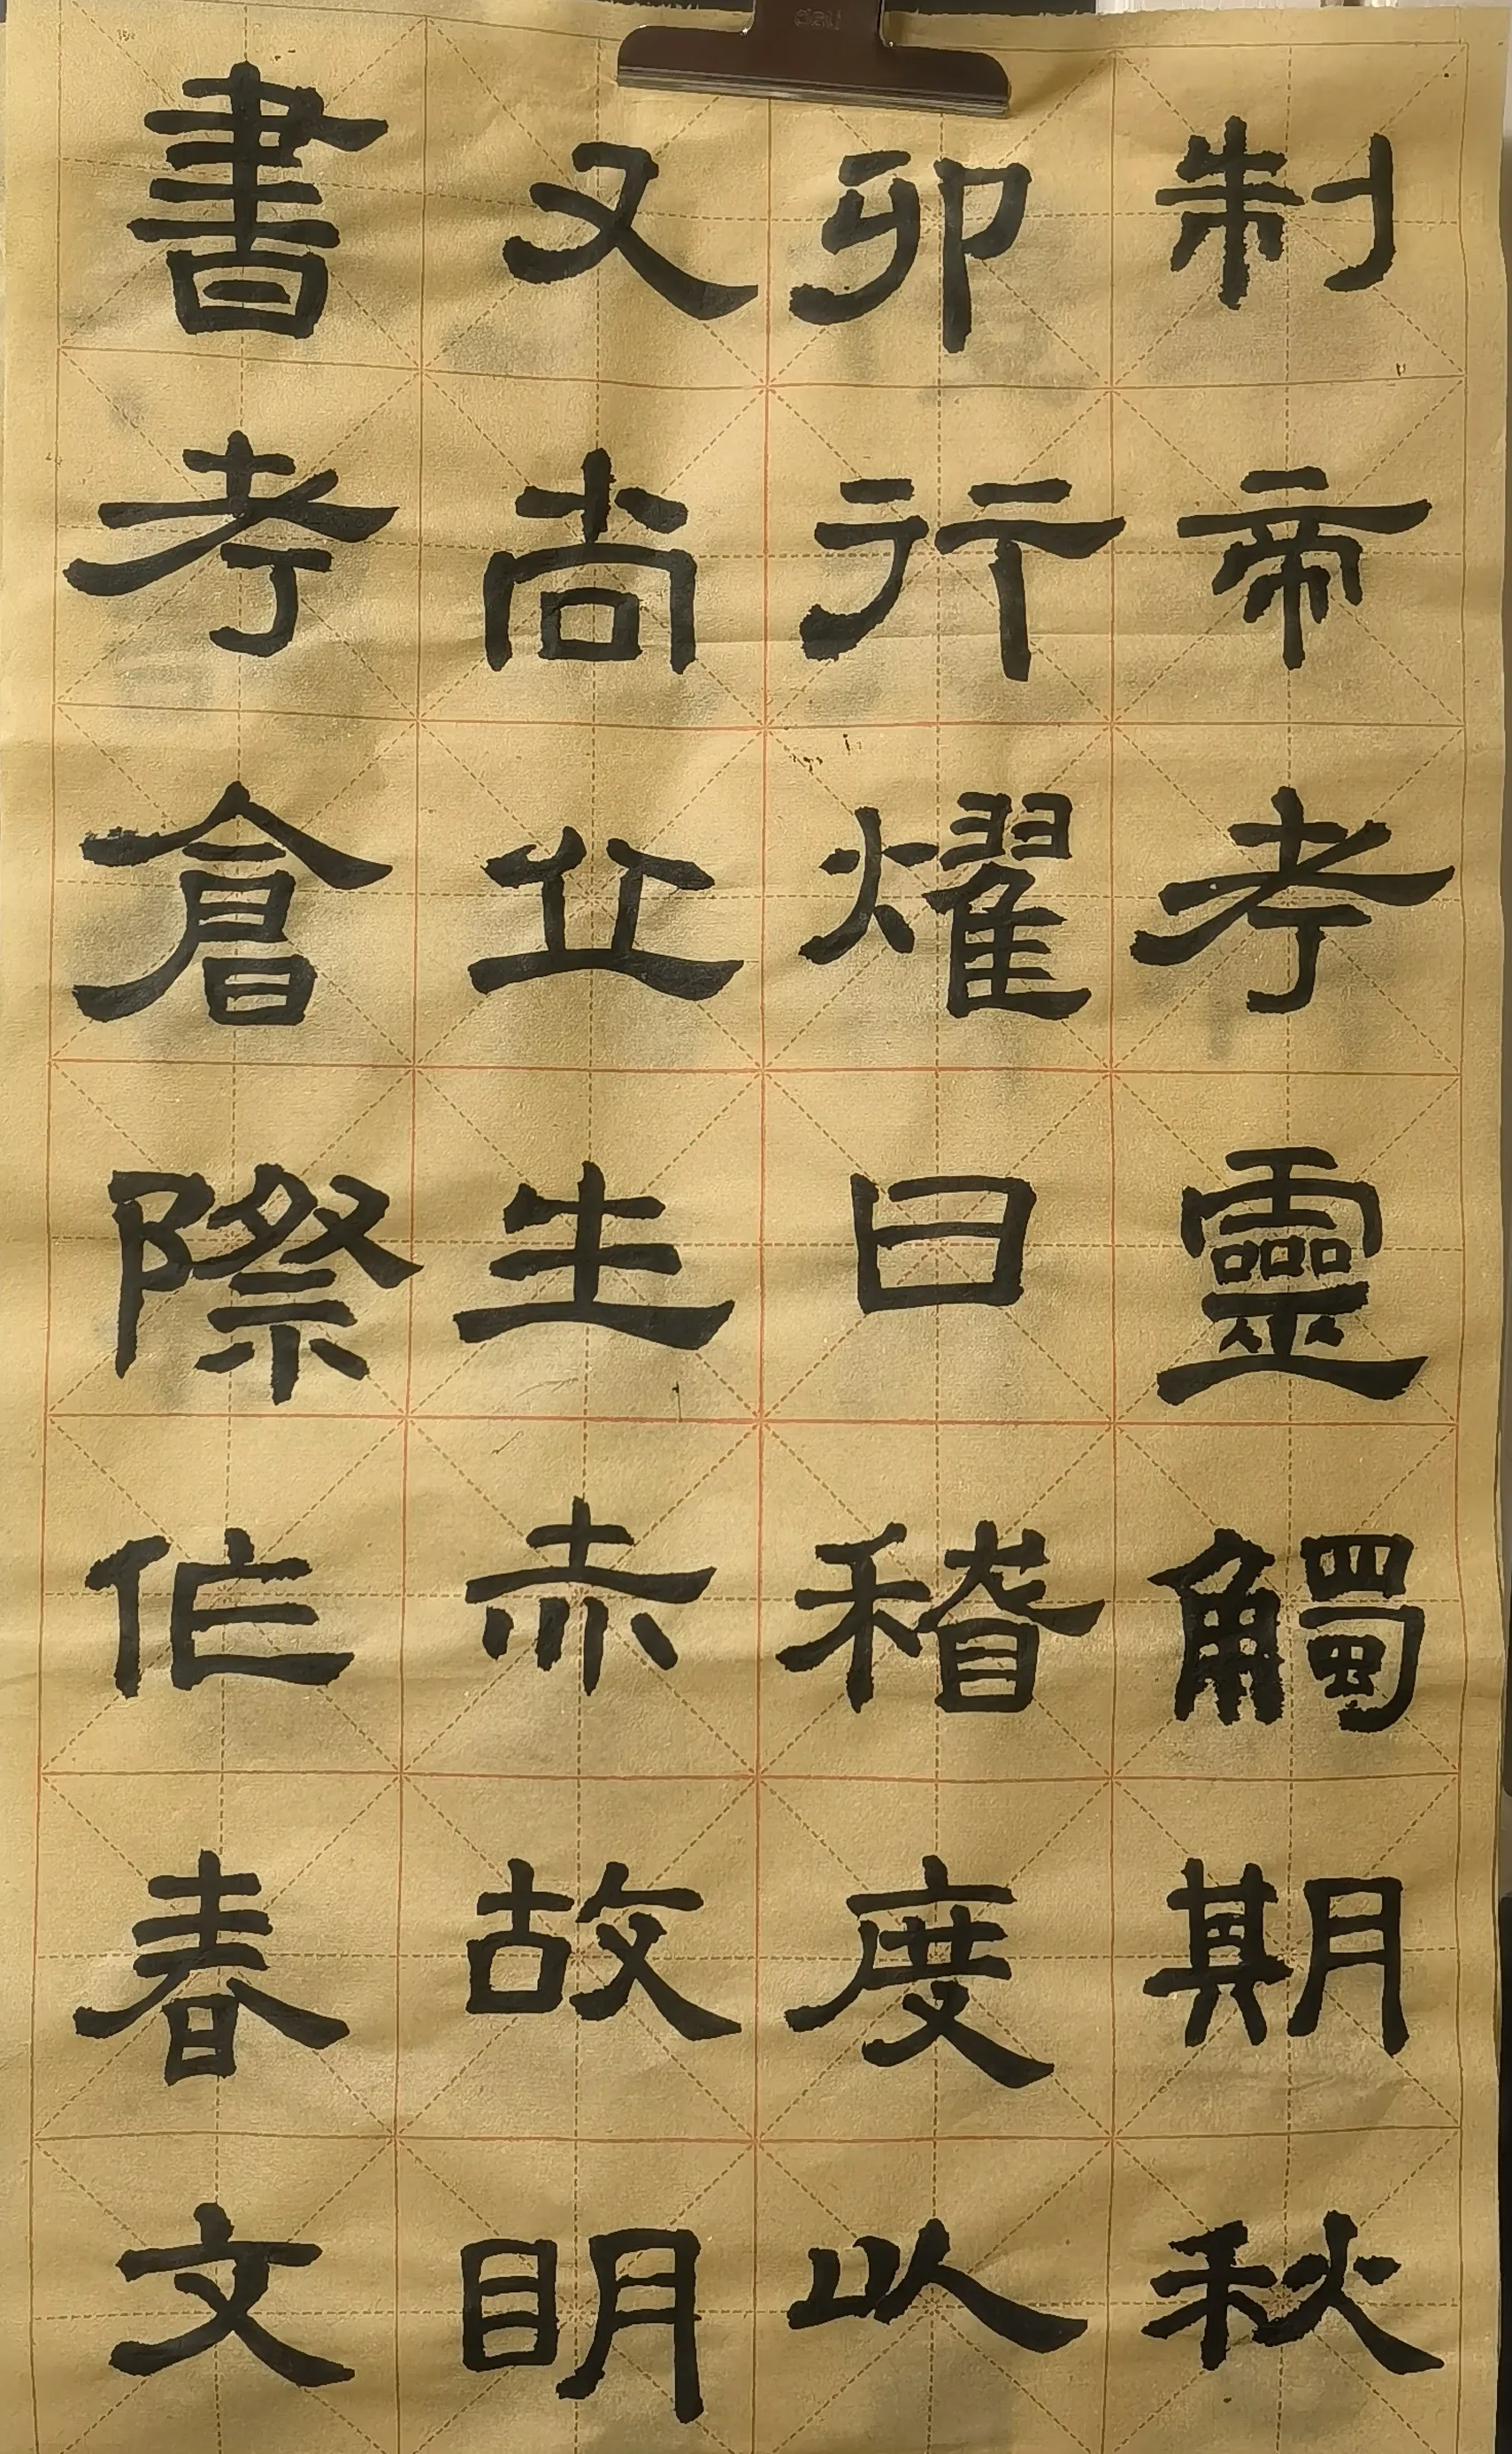 制帝考靈觸期秋
卯行燿曰稽度以
又尚立生赤故明
書考倉際作春文
deli